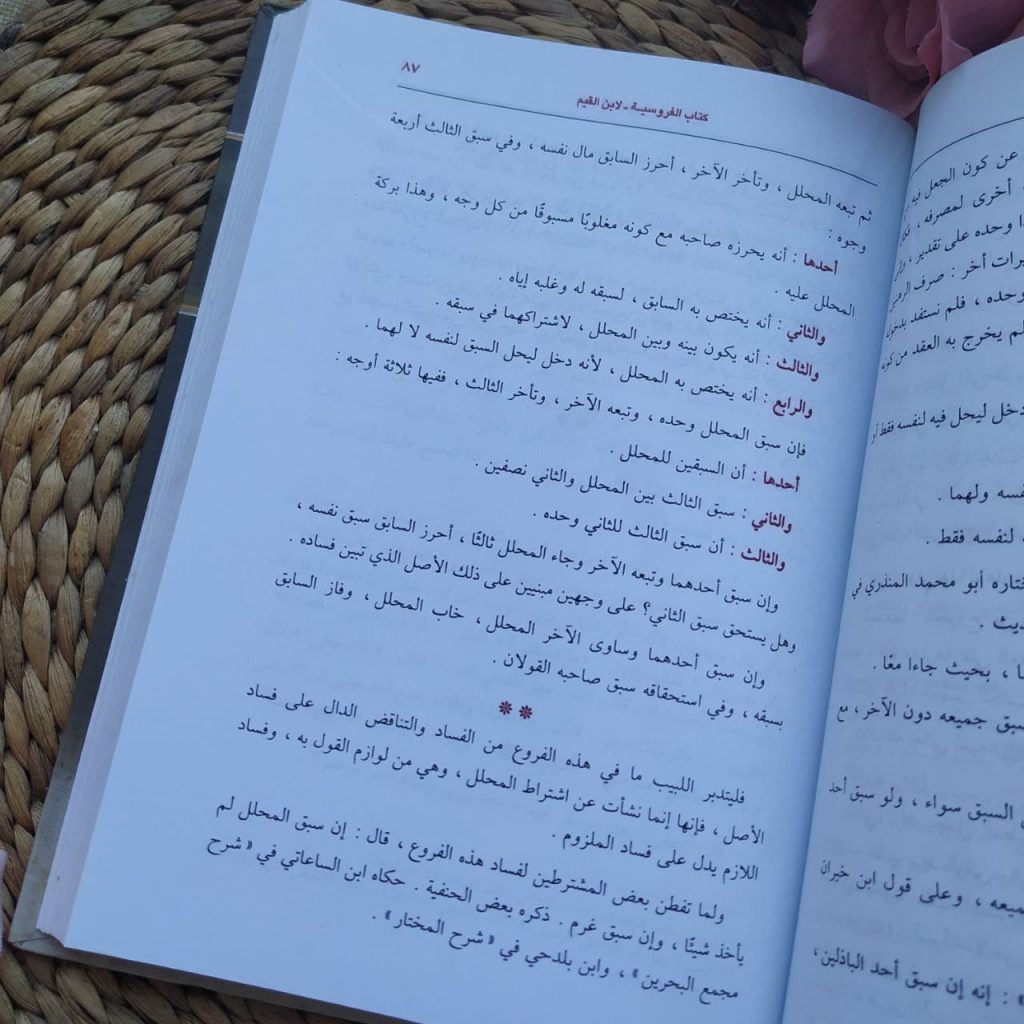 عن كون الجعل فيه
أخرى لمصرفه ،
وحده على تقدير ،
أخر : صرف الرهن
وحده ، فلم نستفد بدخول
لم يخرج به العقد من كونه
دخل ليحل فيه لنفسه فقط أو
ولهما .
لنفسه فقط .
أبو محمد المنذري في
، بحيث جاءا معًا .
جميعه دون الآخر ، مع
السبق سواء ، ولو سبق أحد
، وعلى قول ابن خيران
: إنه إن سبق أحد الباذلين ،
كتاب الفروسية - لابن القيم
٨٧
ثم تبعه المحلل ، وتأخر الآخر ، أحرز السابق مال نفسه ، وفي سبق الثالث أربعة
وجوه :
أحدها : أنه يحرزه صاحبه مع كونه مغلوبًا مسبوقًا من كل وجه ، وهذا بركة
المحلل عليه .
والثاني : أنه يختص به السابق ، لسبقه له وغلبه إياه .
والثالث : أنه يكون بينه وبين المحلل ، لاشتراكهما في سبقه .
والرابع : أنه يختص به المحلل ، لأنه دخل ليحل السبق لنفسه لا لهما .
فإن سبق المحلل وحده ، وتبعه الآخر ، وتأخر الثالث ، ففيها ثلاثة أوجه :
أحدها : أن السبقين للمحلل .
والثاني : سبق الثالث بين المحلل والثاني نصفين .
والثالث : أن سبق الثالث للثاني وحده .
وإن سبق أحدهما وتبعه الآخر وجاء المحلل ثالثًا ، أحرز السابق سبق نفسه ،
وهل يستحق سبق الثاني؟ على وجهين مبنيين على ذلك الأصل الذي تبين فساده .
وإن سبق أحدهما وساوى الآخر المحلل ، خاب المحلل ، وفاز السابق
بسبقه ، وفي استحقاقه سبق صاحبه القولان .
فليتدبر اللبيب ما في هذه الفروع من الفساد والتناقض الدال على فساد
الأصل ، فإنها إنما نشأت عن اشتراط المحلل ، وهي من لوازم القول به ، وفساد
اللازم يدل على فساد الملزوم .
ولما تفطن بعض المشترطين لفساد هذه الفروع ، قال : إن سبق المحلل لم
يأخذ شيئًا ، وإن سبق غرم . ذكره بعض الحنفية . حكاه ابن الساعاتي في « شرح
مجمع البحرين » ، وابن بلدحي في « شرح المختار » .